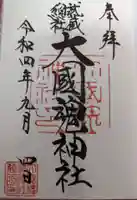 奉拝
武蔵總社
大國魂神社
令和四年九月四日